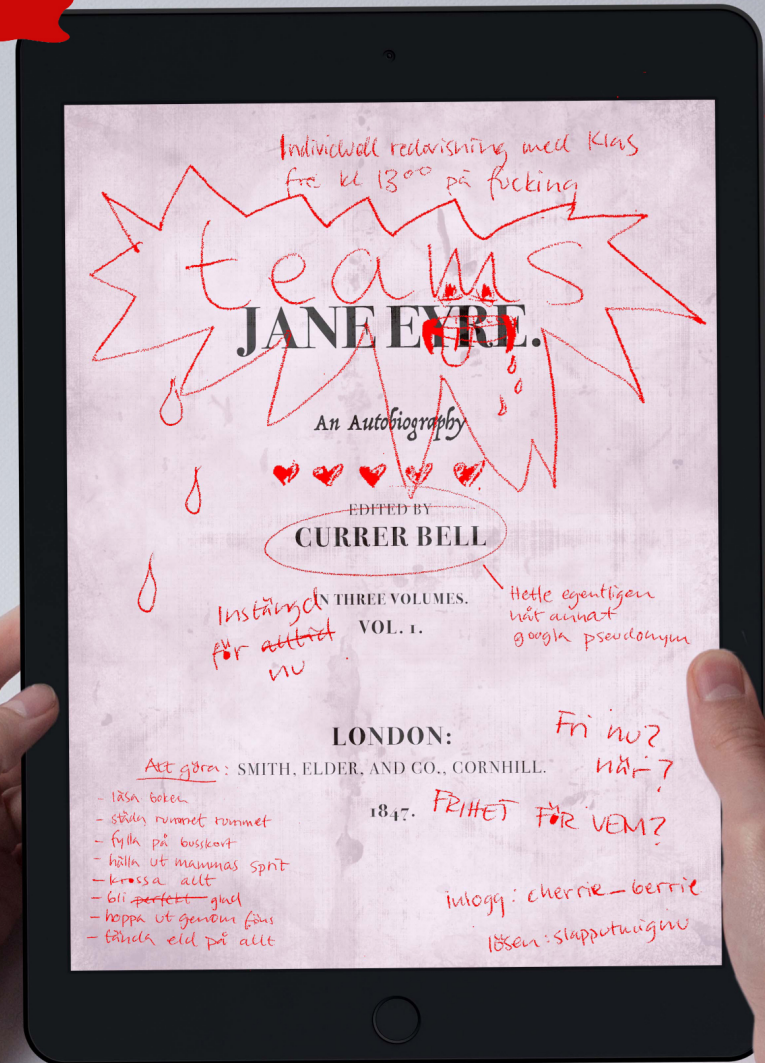 Individuell redovisning med Klas
fre kl 13⁰⁰ på fucking
teams
JANE EYRE.
An Autobiography
EDITED BY
CURRER BELL
Hette egentligen
nåt annat
googla pseudonym
IN THREE VOLUMES.
VOL. I.
Instängd
för alltid
nu
LONDON:
SMITH, ELDER, AND CO., CORNHILL.
1847.
Fri nu?
när?
FRIHET FÖR VEM?
Att göra:
- läsa boken
- städa rummet rummet
- fylla på busskort
- hälla ut mammas sprit
- krossa allt
- bli perfekt glad
- hoppa ut genom föns
- tända eld på allt
inlogg: cherrie_berrie
lösen: slapputmignu